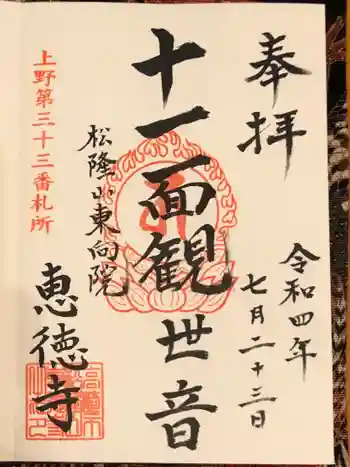 奉拝
令和四年
七月二十三日
十一面観世音
松隆山東向院
恵徳寺
上野第三十三番札所